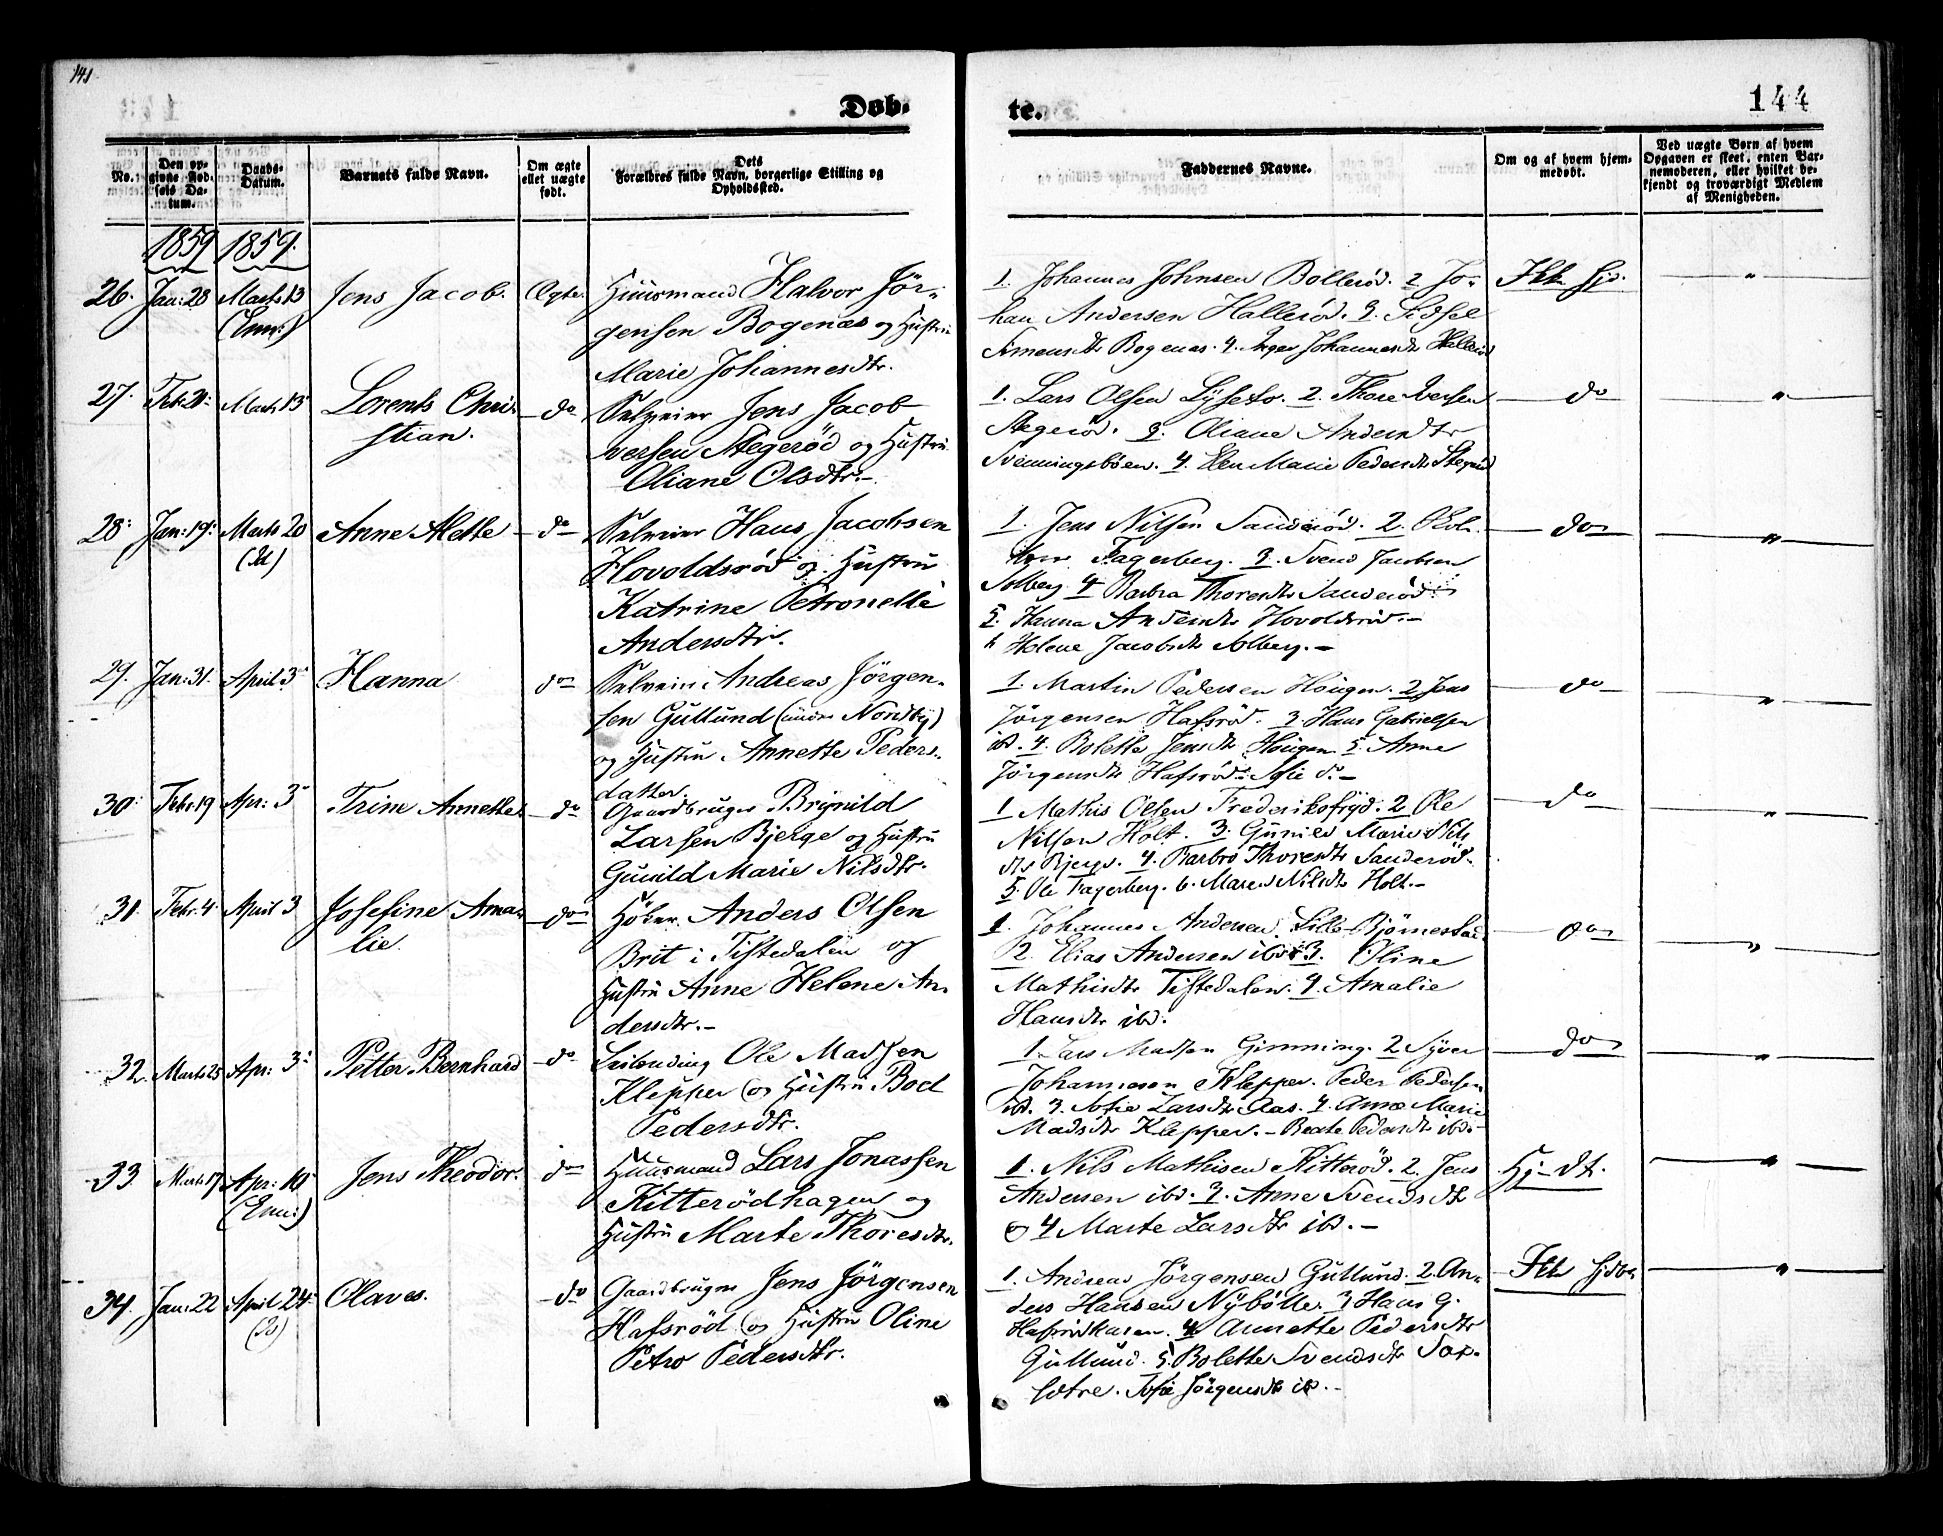 141
144
Døb-
te.
No.
Den op-
givne Fød-
sels Da-
tum.
Daabs-
Datum.
Barnets fulde Navn.
Om ægte
ellet uægte
født.
Dets
Forældres fulde Navn, borgerlige Stilling og
Opholdssted.
Faddernes Navne.
Om og af hvem hjem-
medøbt.
Ved uægte Børn af hvem
Opgaven er skeet, enten Bar-
nemoderen, eller hvilket be-
kjendt og troværdigt Medlem
af Menigheden.
1859 1859.
26. Jan: 28 Marts 13 Jens Jacob. Ægte.
(Enn:)
Huusmand Halvor Jör-
gensen Bogenæs og Hustru
Marie Johannesdtr.
1. Johannes Johnsen Bollerød. 2 Jo-
han Andersen Hallerød. 3. Sidsel
Simensdtr Bogenæs. 4. Inger Johannesdtr Hallerød
Ikk hjd. "
27. Feb: Marts 13 Lorents Chri- do
stian.
Selveier Jens Jacob
Iversen Stegeröd og Hustru
Oliane Olsdtr.-
1. Lars Olsen Lyseto. 2. Thore Iversen
Stegerød. 3. Oliane Andersdtr
Svenningsbøen. 4. Elen Marie Pedersdtr Stegerød
do "
28: Jan: 19: Marts 20 Anne Alette do
Selveier Hans Jacobsen
Hovoldsröd og Hustru
Katrine Petronelle
Andersdtr.
1. Jens Nilsen Sanderød. 2. Ole
Fagerberg. 3. Svend Jacobsen
Solberg 4 Barbra Thoresdtr Sanderød
5. Hanna Andersdtr Hovoldsrød.-
6 Helene Jacobsdtr Solberg.-
do "
29. Jan: 31. April 3 Hanna do
Selveier Andreas Jörgen-
sen Gullund (under Nordby)
og Hustru Annette Peders-
datter.
1. Martin Pedersen Hougen. 2 Jens
Jørgensen Hafsrød. 3. Hans Gabrielsen
ibd. 4. Bolette Jensdtr Hougen 5. Anne
Jørgensdtr Hafsrød Sofie do-
do "
30: Febr: 19 Apr: 3 Trine Annette do
Gaardbruger Brynild
Larsen Bjerge og Hustru
Gunild Marie Nilsdtr.
1 Mathis Olsen Frederiksfryd. 2 Ole
Nilsen Holt. 3. Gunild Marie Nils
dtr Bjerge. 4. Barbro Thoresdtr Sanderød.
5. Ole Fagerberg. 6. Maren Nilsdtr Holt.-
do "
31. Febr: 4 April 3 Josefine Ama- do
lie.
Höker Anders Olsen
Brit i Tistedalen og
Hustru Anne Helene An-
dersdtr.-
1. Johannes Andersen Lille-Bjørnestad
2. Elias Andersen ibd 3. Oline
Mathisdtr Tistedalen. 4. Amalie
Hansdtr ibd.
do "
32. Marts 25 Apr: 3 Petter Bernhard do
Leilending Ole Madsen
Klepper og Hustru Boel
Pedersdtr.
1. Lars Madsen Gimming. 2 Syver
Johannesen Klepper. Peder Pedersen
ibd. 3. Sofie Larsdtr Aas. 4. Anne Marie
Madsdtr Klepper.- Beate Pedersdtr ibd.-
do "
33 Marts 17 Apr: 10 Jens Theodor. do
(Enn:)
Huusmand Lars Jonassen
Kitterödhagen og
Hustru Marte Thoresdtr.
1. Nils Mathisen Kitterød. 2. Jens
Andersen ibd. 3. Anne Svendsdtr
og 4 Marte Larsdtr ibd.-
Hj-dt. "
34. Jan: 22 April 24 Olaves. do
Gaardbruger Jens Jörgensen
Hafsröd og Hustru Oline
Petro Pedersdtr.
1. Andreas Jørgensen Gullund. 2. An-
ders Hansen Nybølle. 3 Hans G.
4. Annette Pedersdtr
Gullund. 5. Bolette Svendsdtr Tox-
sætre. Sofie Jörgensdtr ib.-
Ikk hjdt. "